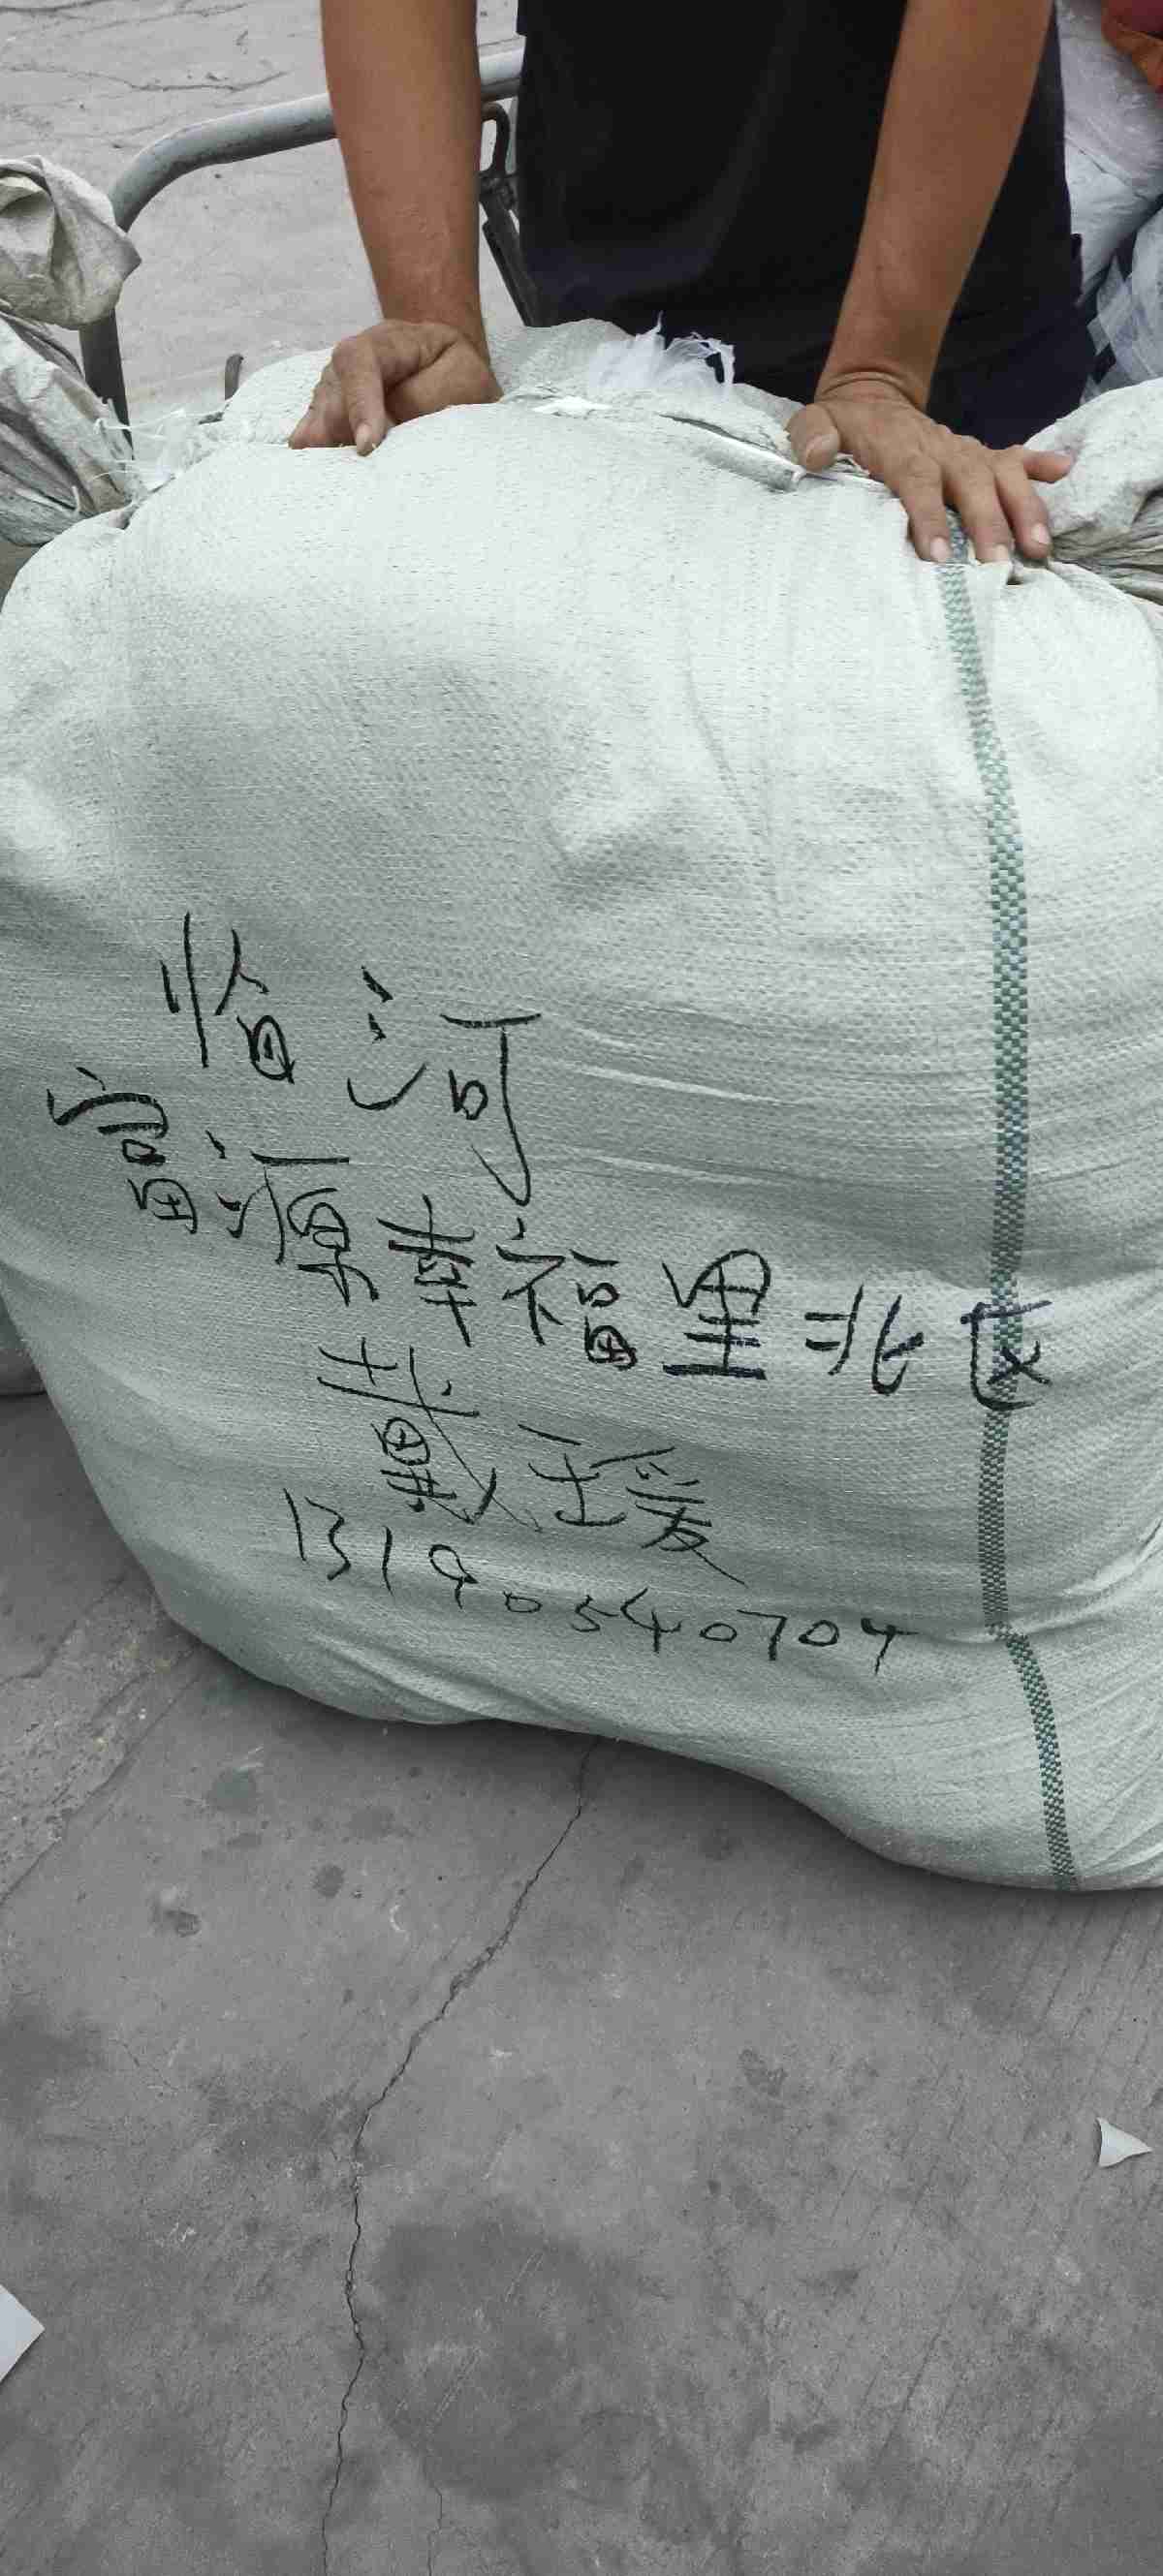 临河
富源幸福里北区
戴瑷
13190540704